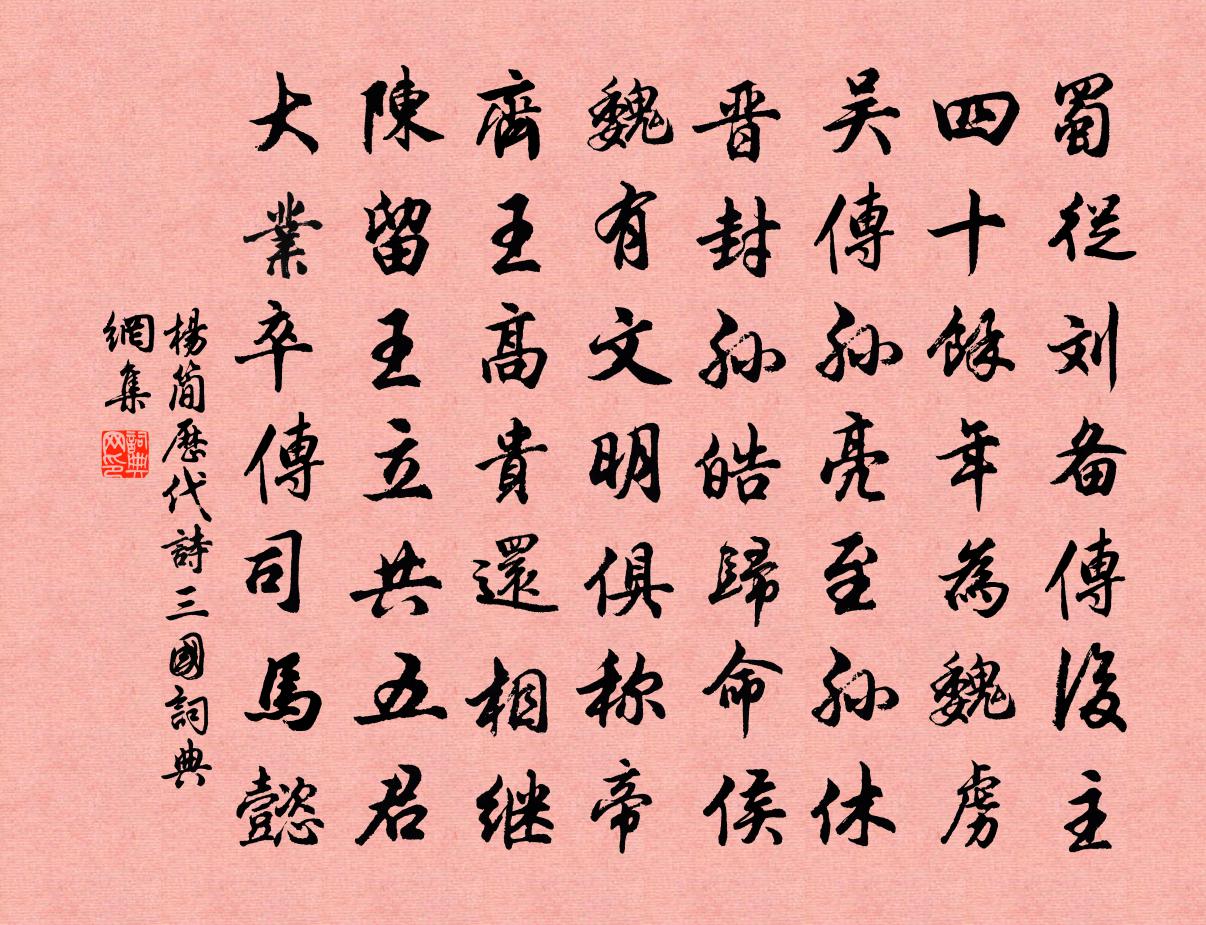 蜀從刘备傳後主
四十餘年為魏虏
吴傳孙亮至孙休
晋封孙皓歸命侯
魏有文明俱称帝
齊王高貴還相继
陳留王立共五君
大業卒傳司馬懿
楊简歷代詩三國詞典
網集
詞典
网印